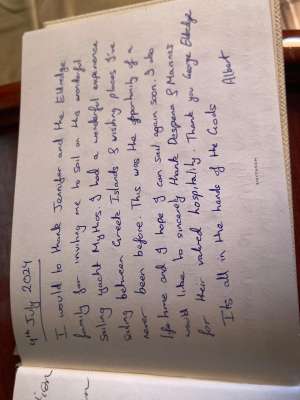 4th July 2024
I would to thank Jennifer and the Eldridge
family for inviting me to sail on this wonderful
sailing yacht Mythos. I had a wonderful experience
sailing between Greek Islands & visiting places I've
never been before. This was the opportunity of a
life time and I hope I can sail again soon. I also
would like to sincerely thank Despena & Manos
for their valued hospitality. Thank you George Eldridge
Its all in the hands of the Gods
Albert